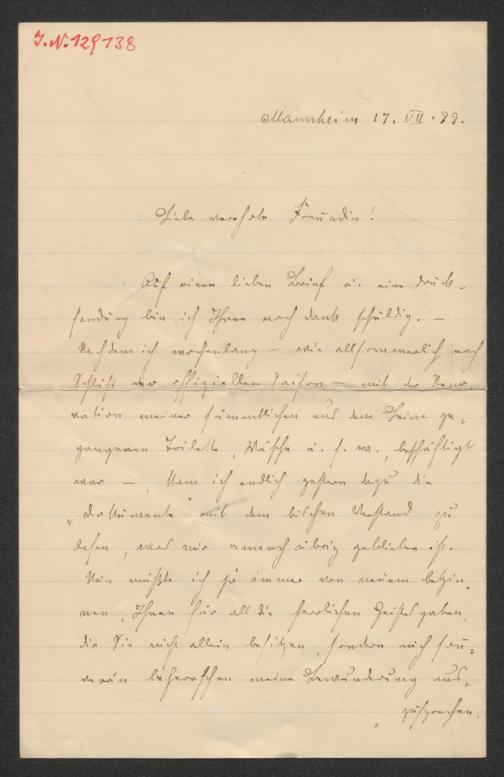 J.N. 129138
Mannheim 17. VII. 99.
Liebe verehrte Freundin!
Auf einen lieben Brief u. eine Druck-
sendung bin ich Ihnen noch Dank schuldig. —
Nachdem ich wochenlang – wie allsommerlich nach
Schluß der offiziellen Saison – mit der Reno-
vation meiner sämmtlichen aus dem Leim ge-
gangenen Toilette, Wäsche u. s. w., beschäftigt
war –, kam ich endlich gestern dazu die
„Dokumente" mit dem bischen Verstand zu
lesen, was mir annoch übrig geblieben ist.
Nun müßte ich ja immer von neuem begin-
nen, Ihnen für all die herrlichen Geistesgaben,
die Sie nicht allein besitzen, sondern auch sou-
verän beherrschen meine Bewunderung aus-
zusprechen.